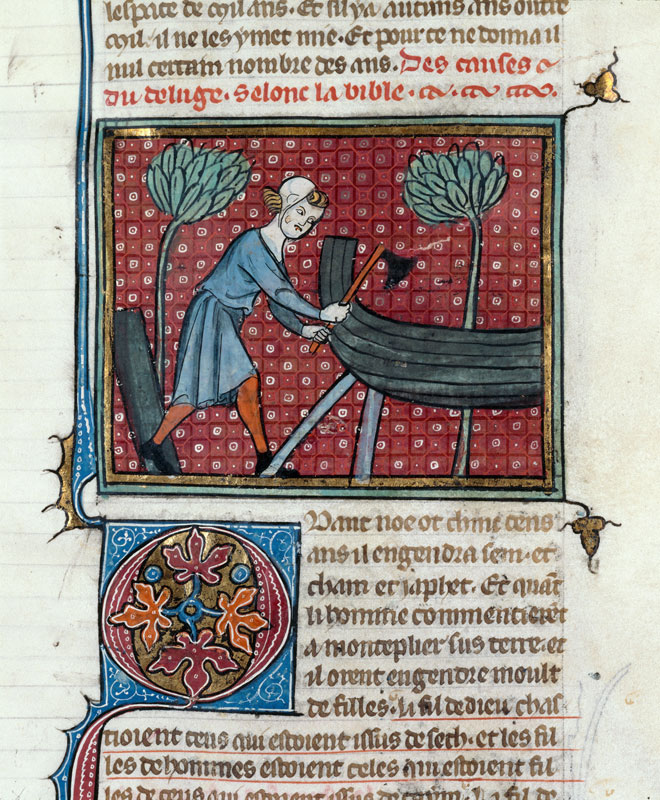 lespace de .cxx. ans. Et sil ya aucuns ans outre
.cxx. il ne les y met mie. Et pour ce ne donna il
nul certain nombre des ans. Des causes
du deluge. Selonc la bible.
Quant noe ot chinc cens
ans il engendra sem. et
cham et japhet. Et quāt
li homme commencierēt
a monteplier sus terre. et
il orent engendre moult
de filles. li fil de dieu chas
cioient ceus qui estoient issus de seth. et les fil
les de hommes estoient celes qui estoient fil
les de ceus qui estoient issus de caim. Li fil de